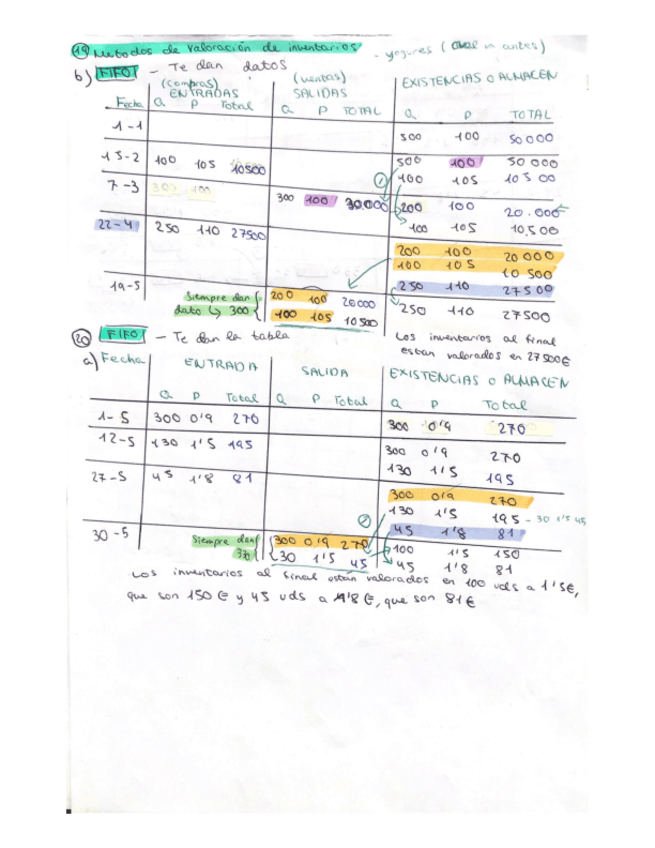 19 Metodos de valoración de inventarios - yogures ( in antes)
b) FIFO - Te dan datos
(compras) (ventas)
ENTRADAS SALIDAS EXISTENCIAS O ALMACEN
Fecha Q P Total Q P TOTAL Q P TOTAL
1-1 500 100 50000
15-2 100 105 10500 500 100 50 000
100 105 105 00
7-3 300 100 300 100 30.000 1 200 100 20.000
100 105 10,500
22-4 250 110 27500 200 100 20 000
100 105 10 500
250 110 27500
19-5 Siempre dan 200 100 20000 250 110 27500
dato 300 100 105 10500
20 FIFO - Te dan la tabla
Los inventarios al final
estan valorados en 27500€
a) Fecha ENTRADA SALIDA EXISTENCIAS O ALMACEN
Q P Total Q P Total Q P Total
1-5 300 0'9 270 300 0'9 270
12-5 130 1'5 195 300 0'9 270
130 1'5 195
27-5 45 1'8 81 300 0'9 270
130 1'5 195 - 30 1'5 45
2 45 1'8 81
30-5 Siempre dan 300 0'9 270 100 1'5 150
330 30 1'5 45 45 1'8 81
Los inventarios al final están valorados en 100 uds a 1'5€,
que son 150 € y 45 uds a 1'8 €, que son 81€